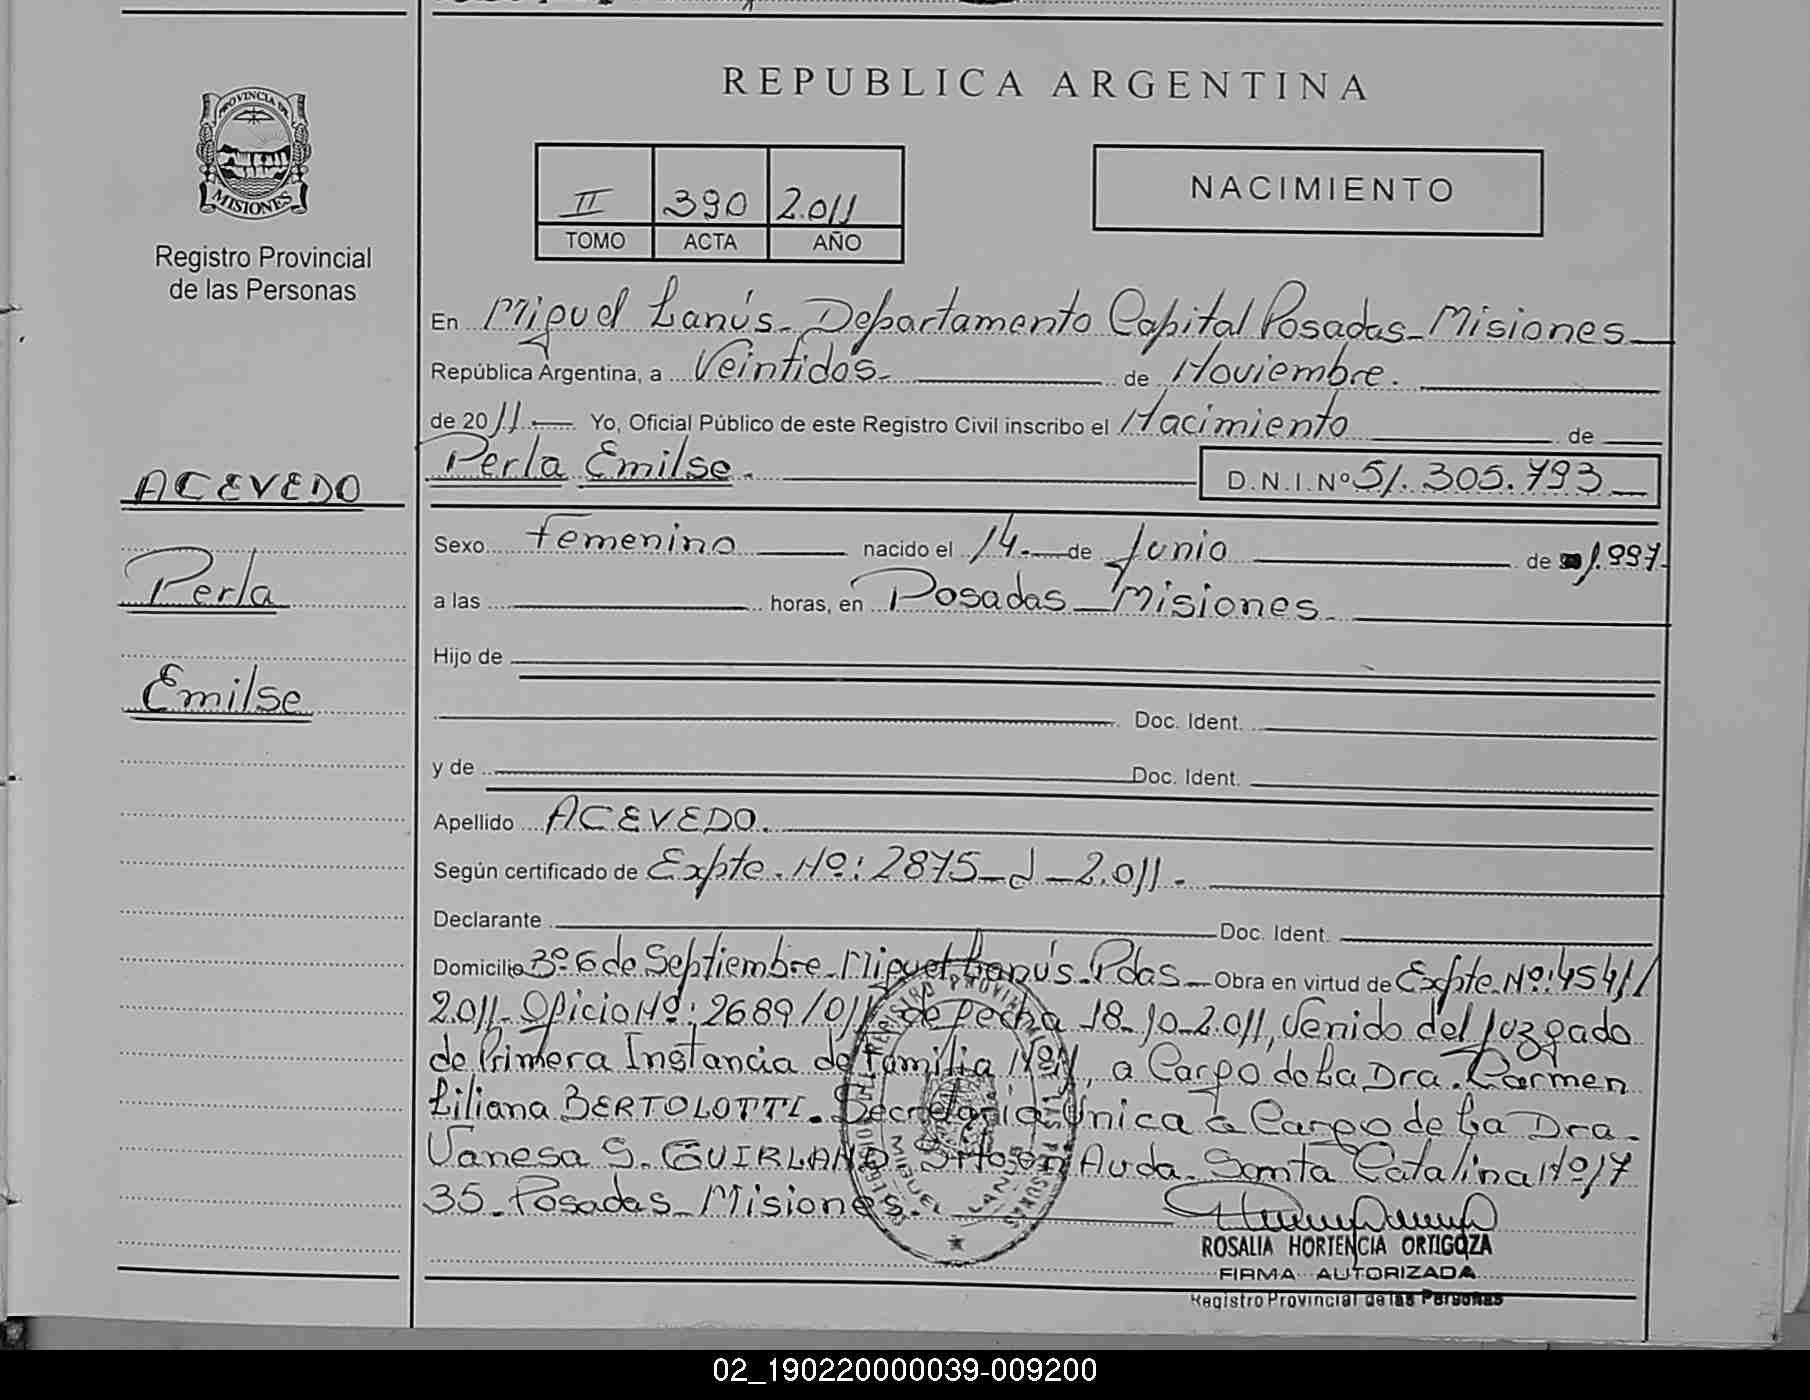 REPUBLICA ARGENTINA
PROVINCIA DE
MISIONES
Registro Provincial
de las Personas
II 390 2.011
TOMO ACTA AÑO
NACIMIENTO
En Miguel Lanús - Departamento Capital Posadas - Misiones
República Argentina, a Veintidós - de Noviembre.
de 2011. Yo, Oficial Público de este Registro Civil inscribo el Nacimiento de
Perla Emilse. D.N.I.Nº 51.305.793
ACEVEDO
Perla
Emilse
Sexo Femenino nacido el 14 de Junio de 1.997
a las horas, en Posadas - Misiones
Hijo de
Doc. Ident.
y de Doc. Ident.
Apellido ACEVEDO.
Según certificado de Expte. Nº: 2875 - J - 2.011.
Declarante Doc. Ident.
Domicilio 3º 6 de Septiembre - Miguel Lanús - Pdas - Obra en virtud de Expte. Nº: 454//
2.011 - Oficio Nº: 2689/011 de fecha 18-10-2.011, Venido del Juzgado
de Primera Instancia de Familia Nº 1, a Cargo de La Dra. Carmen
Liliana BERTOLOTTI. Secretaría Única a Cargo de La Dra.
Vanesa S. GUIRLAND Sito en Avda. Santa Catalina Nº 17
35 - Posadas - Misiones.
ROSALIA HORTENCIA ORTIGOZA
FIRMA AUTORIZADA
Registro Provincial de las Personas
02_190220000039-009200